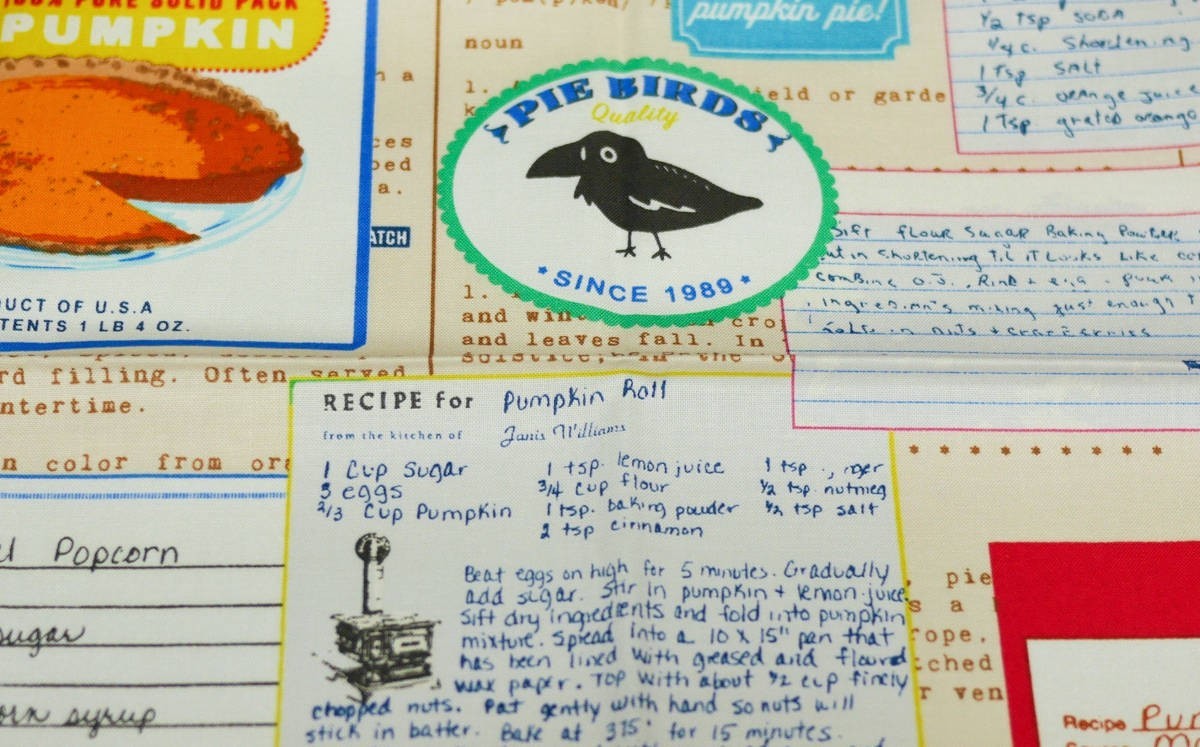 100% PURE SOLID PACK
PUMPKIN
UCT OF U.S.A
TENTS 1 LB 4 OZ.
noun
1.
ield or garde
ces
a.
ATCH
pumpkin pie!
PIE BIRDS
Quality
SINCE 1989
1/2 Tsp SODA
1/4 c. Shortening
1 Tsp SALT
3/4 c. orange juice
1 Tsp grated orange
Sift flour Sugar Baking Powder
ut in Shortening Til it Looks Like
Combine O.J., Rind + egg
ingredients mixing just enough T
in nuts +
1.
and win cro
and leaves fall. In
solstice, the
rd filling. Often served
ntertime.
n color from or
RECIPE for Pumpkin Roll
from the kitchen of Janis Williams
1 Cup Sugar
3 eggs
2/3 Cup Pumpkin
1 tsp. lemon juice
3/4 cup flour
1 tsp. baking powder
2 tsp cinnamon
1 tsp
1/2 tsp. nutmeg
1/2 tsp salt
Beat eggs on high for 5 minutes. Gradually
add sugar. Stir in pumpkin + lemon juice.
Sift dry ingredients and fold into pumpkin
mixture. Spread into a 10 x 15" pan that
has been lined with greased and floured
wax paper. Top with about 1/2 cup finely
chopped nuts. Pat gently with hand so nuts will
stick in batter. Bake at 375° for 15 minutes.
Popcorn
sugar
orn syrup
* * * * * * * * *
, pie
s a
rope.
tched
r ven
Recipe Pum